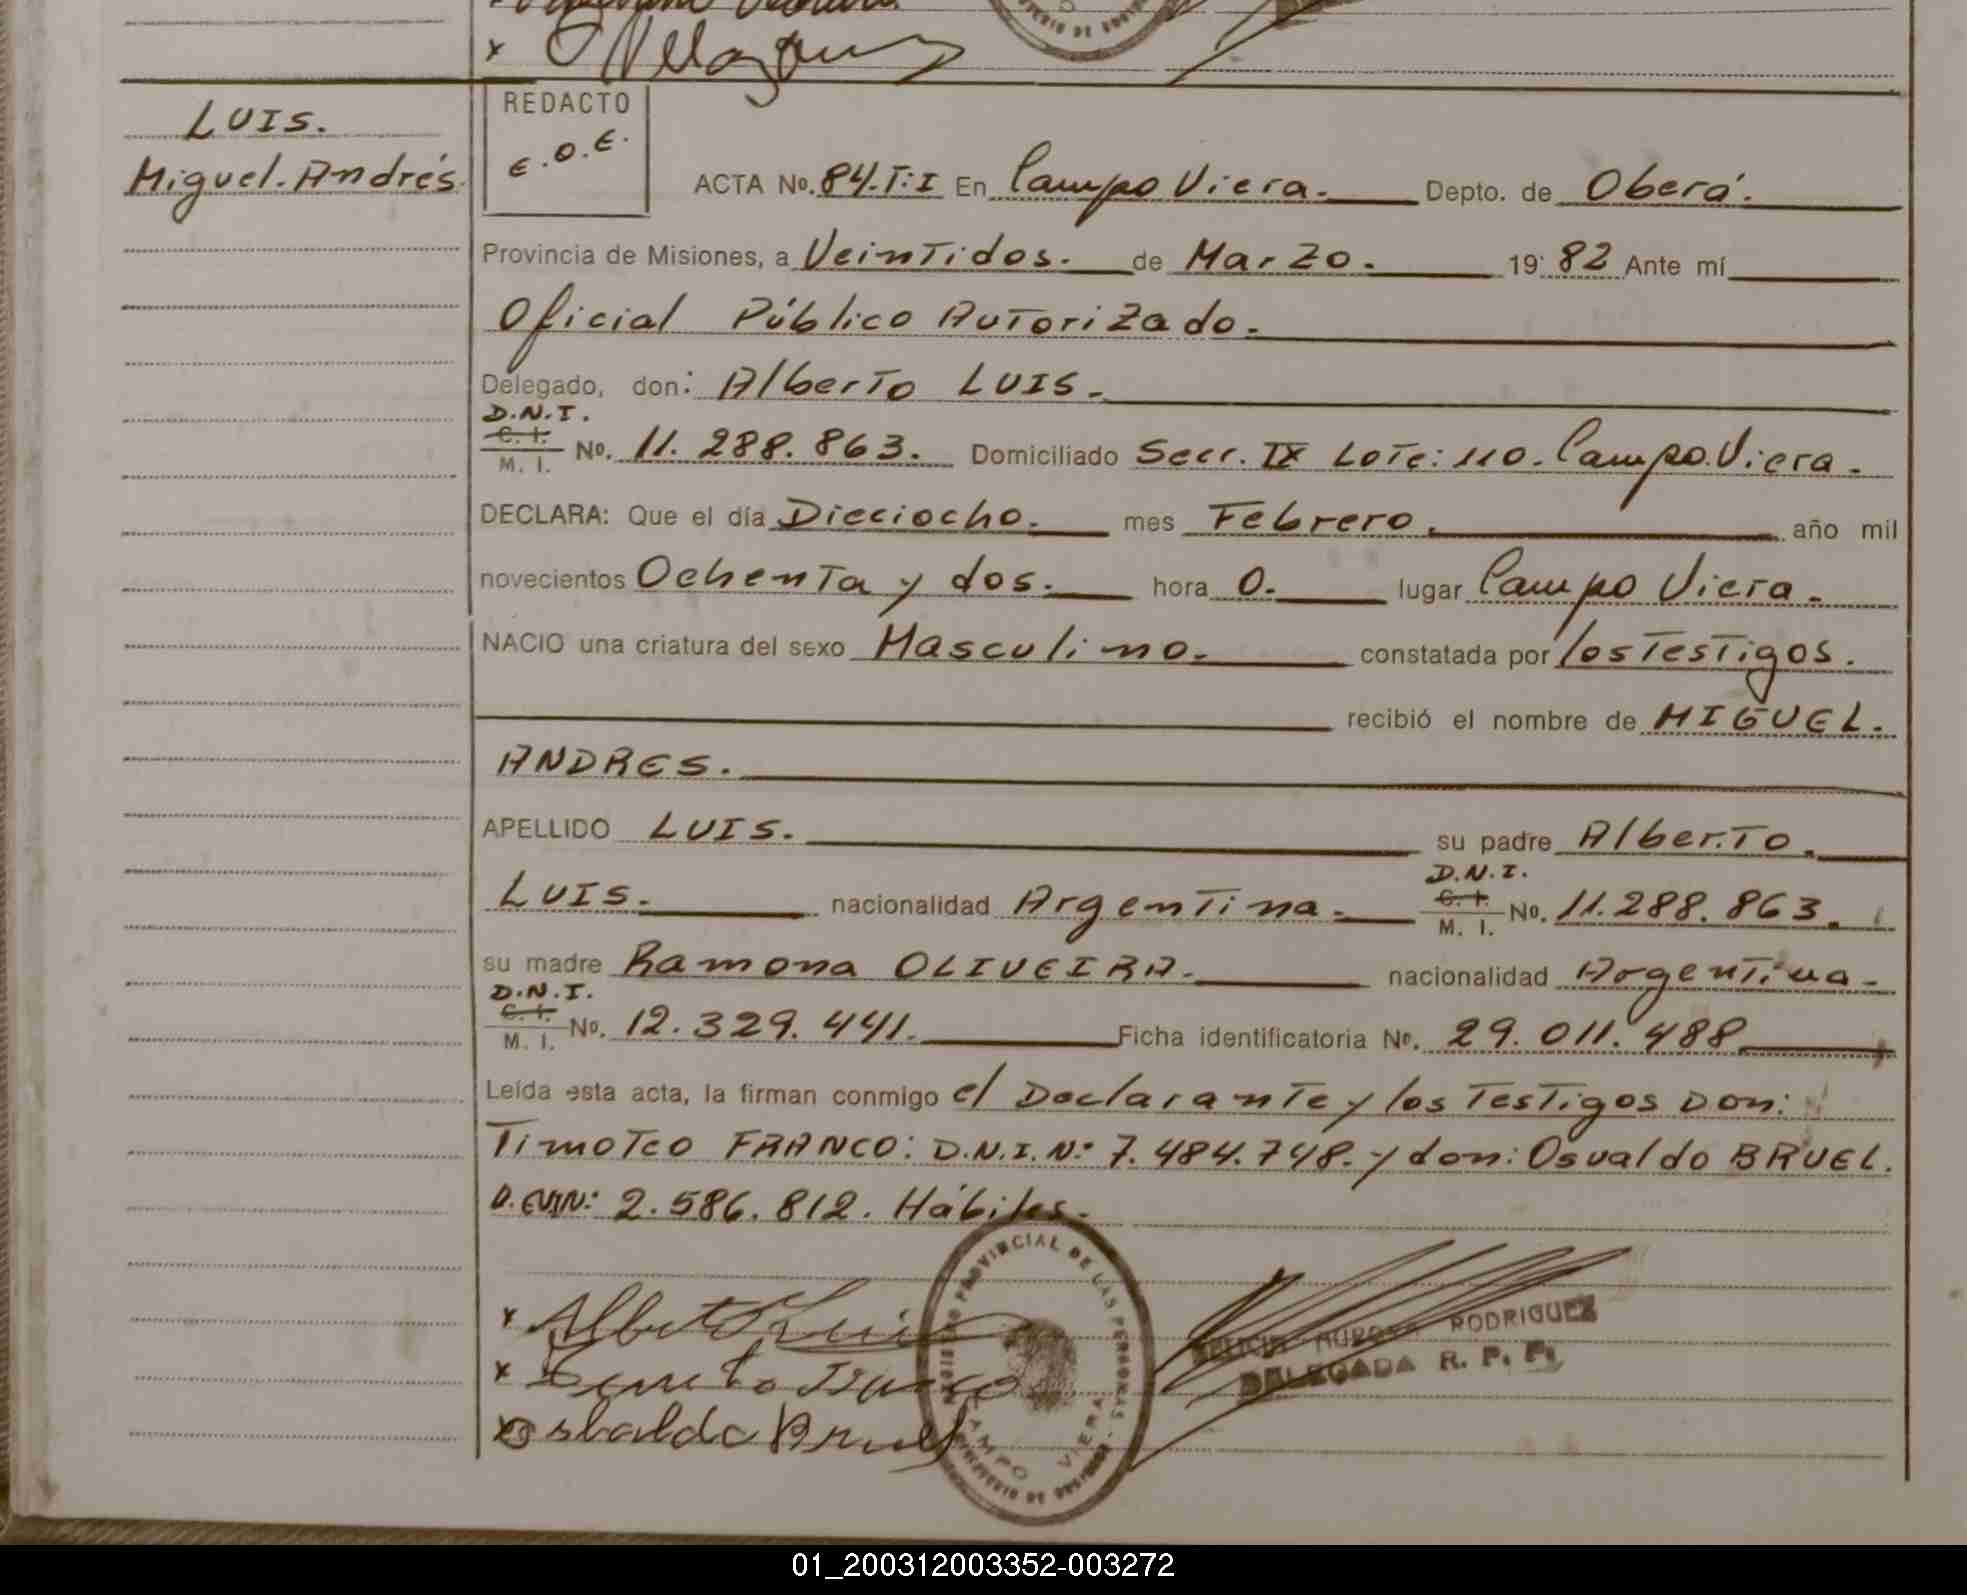 LUIS.
Miguel. Andrés.
REDACTO
E.O.E.
ACTA No. 84.T:I En Campo Viera. Depto. de Oberá.
Provincia de Misiones, a Veintidos. de Marzo. 19 82 Ante mí
Oficial Público Autorizado.
Delegado, don: Alberto LUIS.
D.N.I.
C. I.
M. I. No. 11.288.863. Domiciliado Secc. IX Lote: 110. Campo Viera.
DECLARA: Que el día Dieciocho. mes Febrero. año mil
novecientos Ochenta y dos. hora 0. lugar Campo Viera.
NACIO una criatura del sexo Masculino. constatada por los Testigos.
recibió el nombre de MIGUEL.
ANDRES.
APELLIDO LUIS. su padre Alberto.
D.N.I.
LUIS. nacionalidad Argentina. C. I. M. I. No. 11.288.863.
su madre Ramona OLIVEIRA. nacionalidad Argentina.
D.N.I.
C. I.
M. I. No. 12.329.441. Ficha identificatoria No. 29.011.488
Leída esta acta, la firman conmigo el Declarante y los Testigos Don:
Timoteo FRANCO: D.N.I.Nº 7.484.748. y don: Osvaldo BRUEL.
2.586.812. Hábiles.
x Alberto Luis
x
x Osbaldo Bruel
REGISTRO PROVINCIAL DE LAS PERSONAS
CAMPO VIERA
MINISTERIO DE GOBIERNO
RODRIGUEZ
DELEGADA R. P. P.
01_200312003352-003272